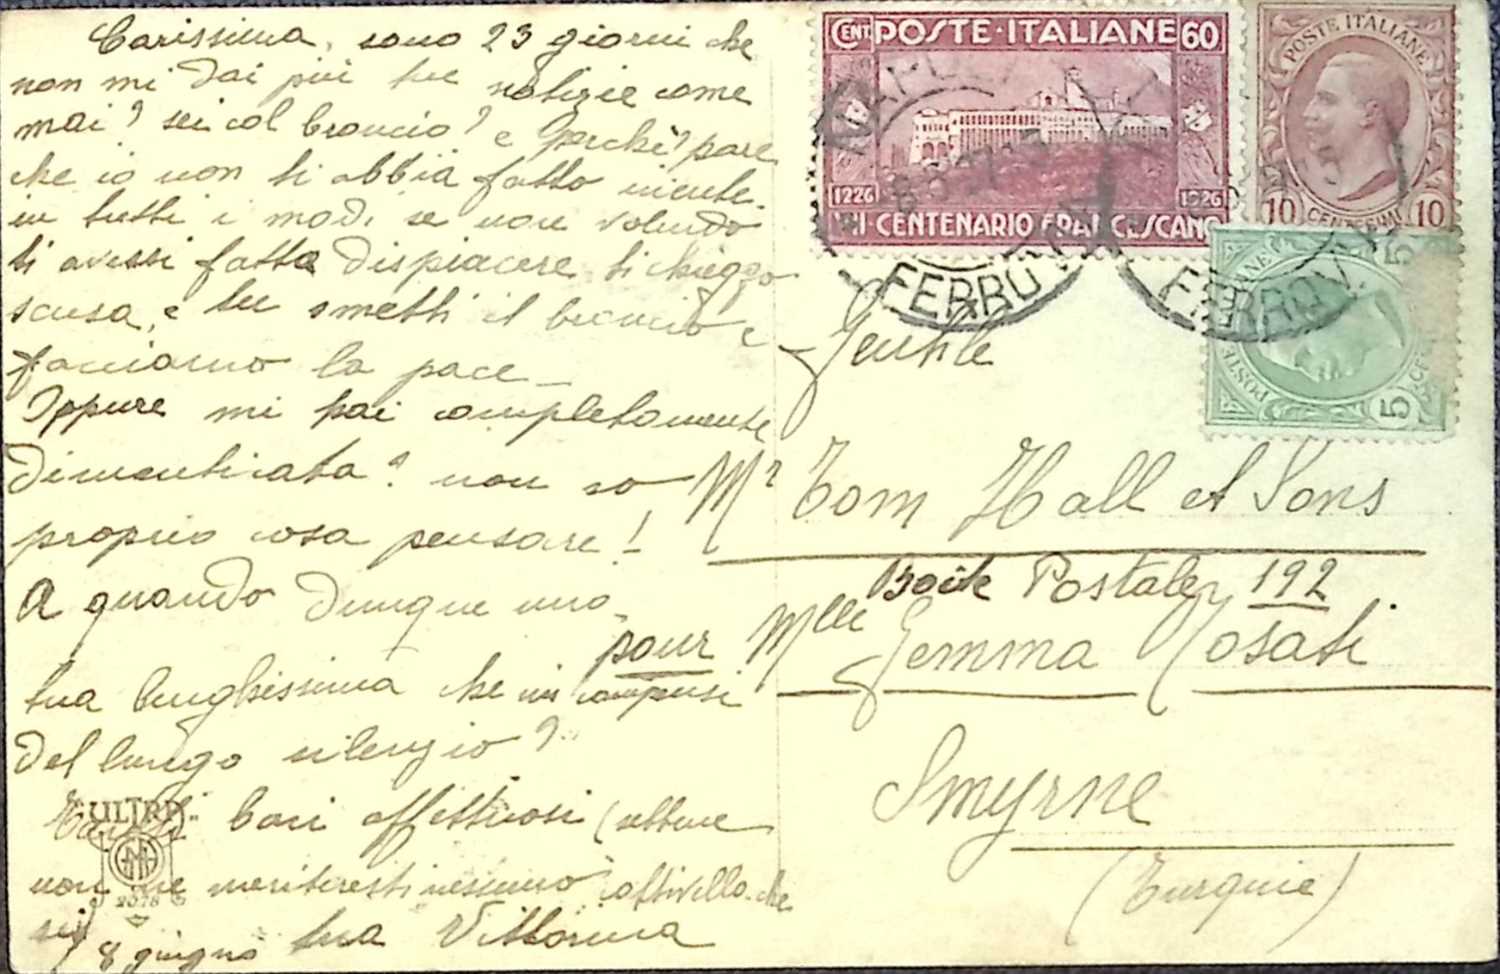 Carissima, sono 23 giorni che
non mi dai più tue notizie come
mai? sei col broncio? e perchè? pare
che io non ti abbia fatto niente.
in tutti i modi se non volendo
ti avessi fatto dispiacere ti chieggo
scusa, e tu smetti il broncio e
facciamo la pace
Oppure mi hai completamente
dimenticata? non so
proprio cosa pensare!
A quando dunque una
tua lunghissima che mi compensi
del lungo silenzio?
baci affettuosi (ebbene
non ne meriteresti nessuno cattivella che
sei)
8 giugno tua Vittorina
ULTRA
2578
CENT. POSTE·ITALIANE 60
1226 1926
VII·CENTENARIO FRANCESCANO
POSTE ITALIANE
10 CENTESIMI 10
POSTE ITALIANE
5 5
NAPOLI
FERROVIA
FERROV.
Gentile
Mr Tom Hall et Sons
Boite Postale 192
pour Mlle Gemma Rosati
Smyrne
(Turquie)